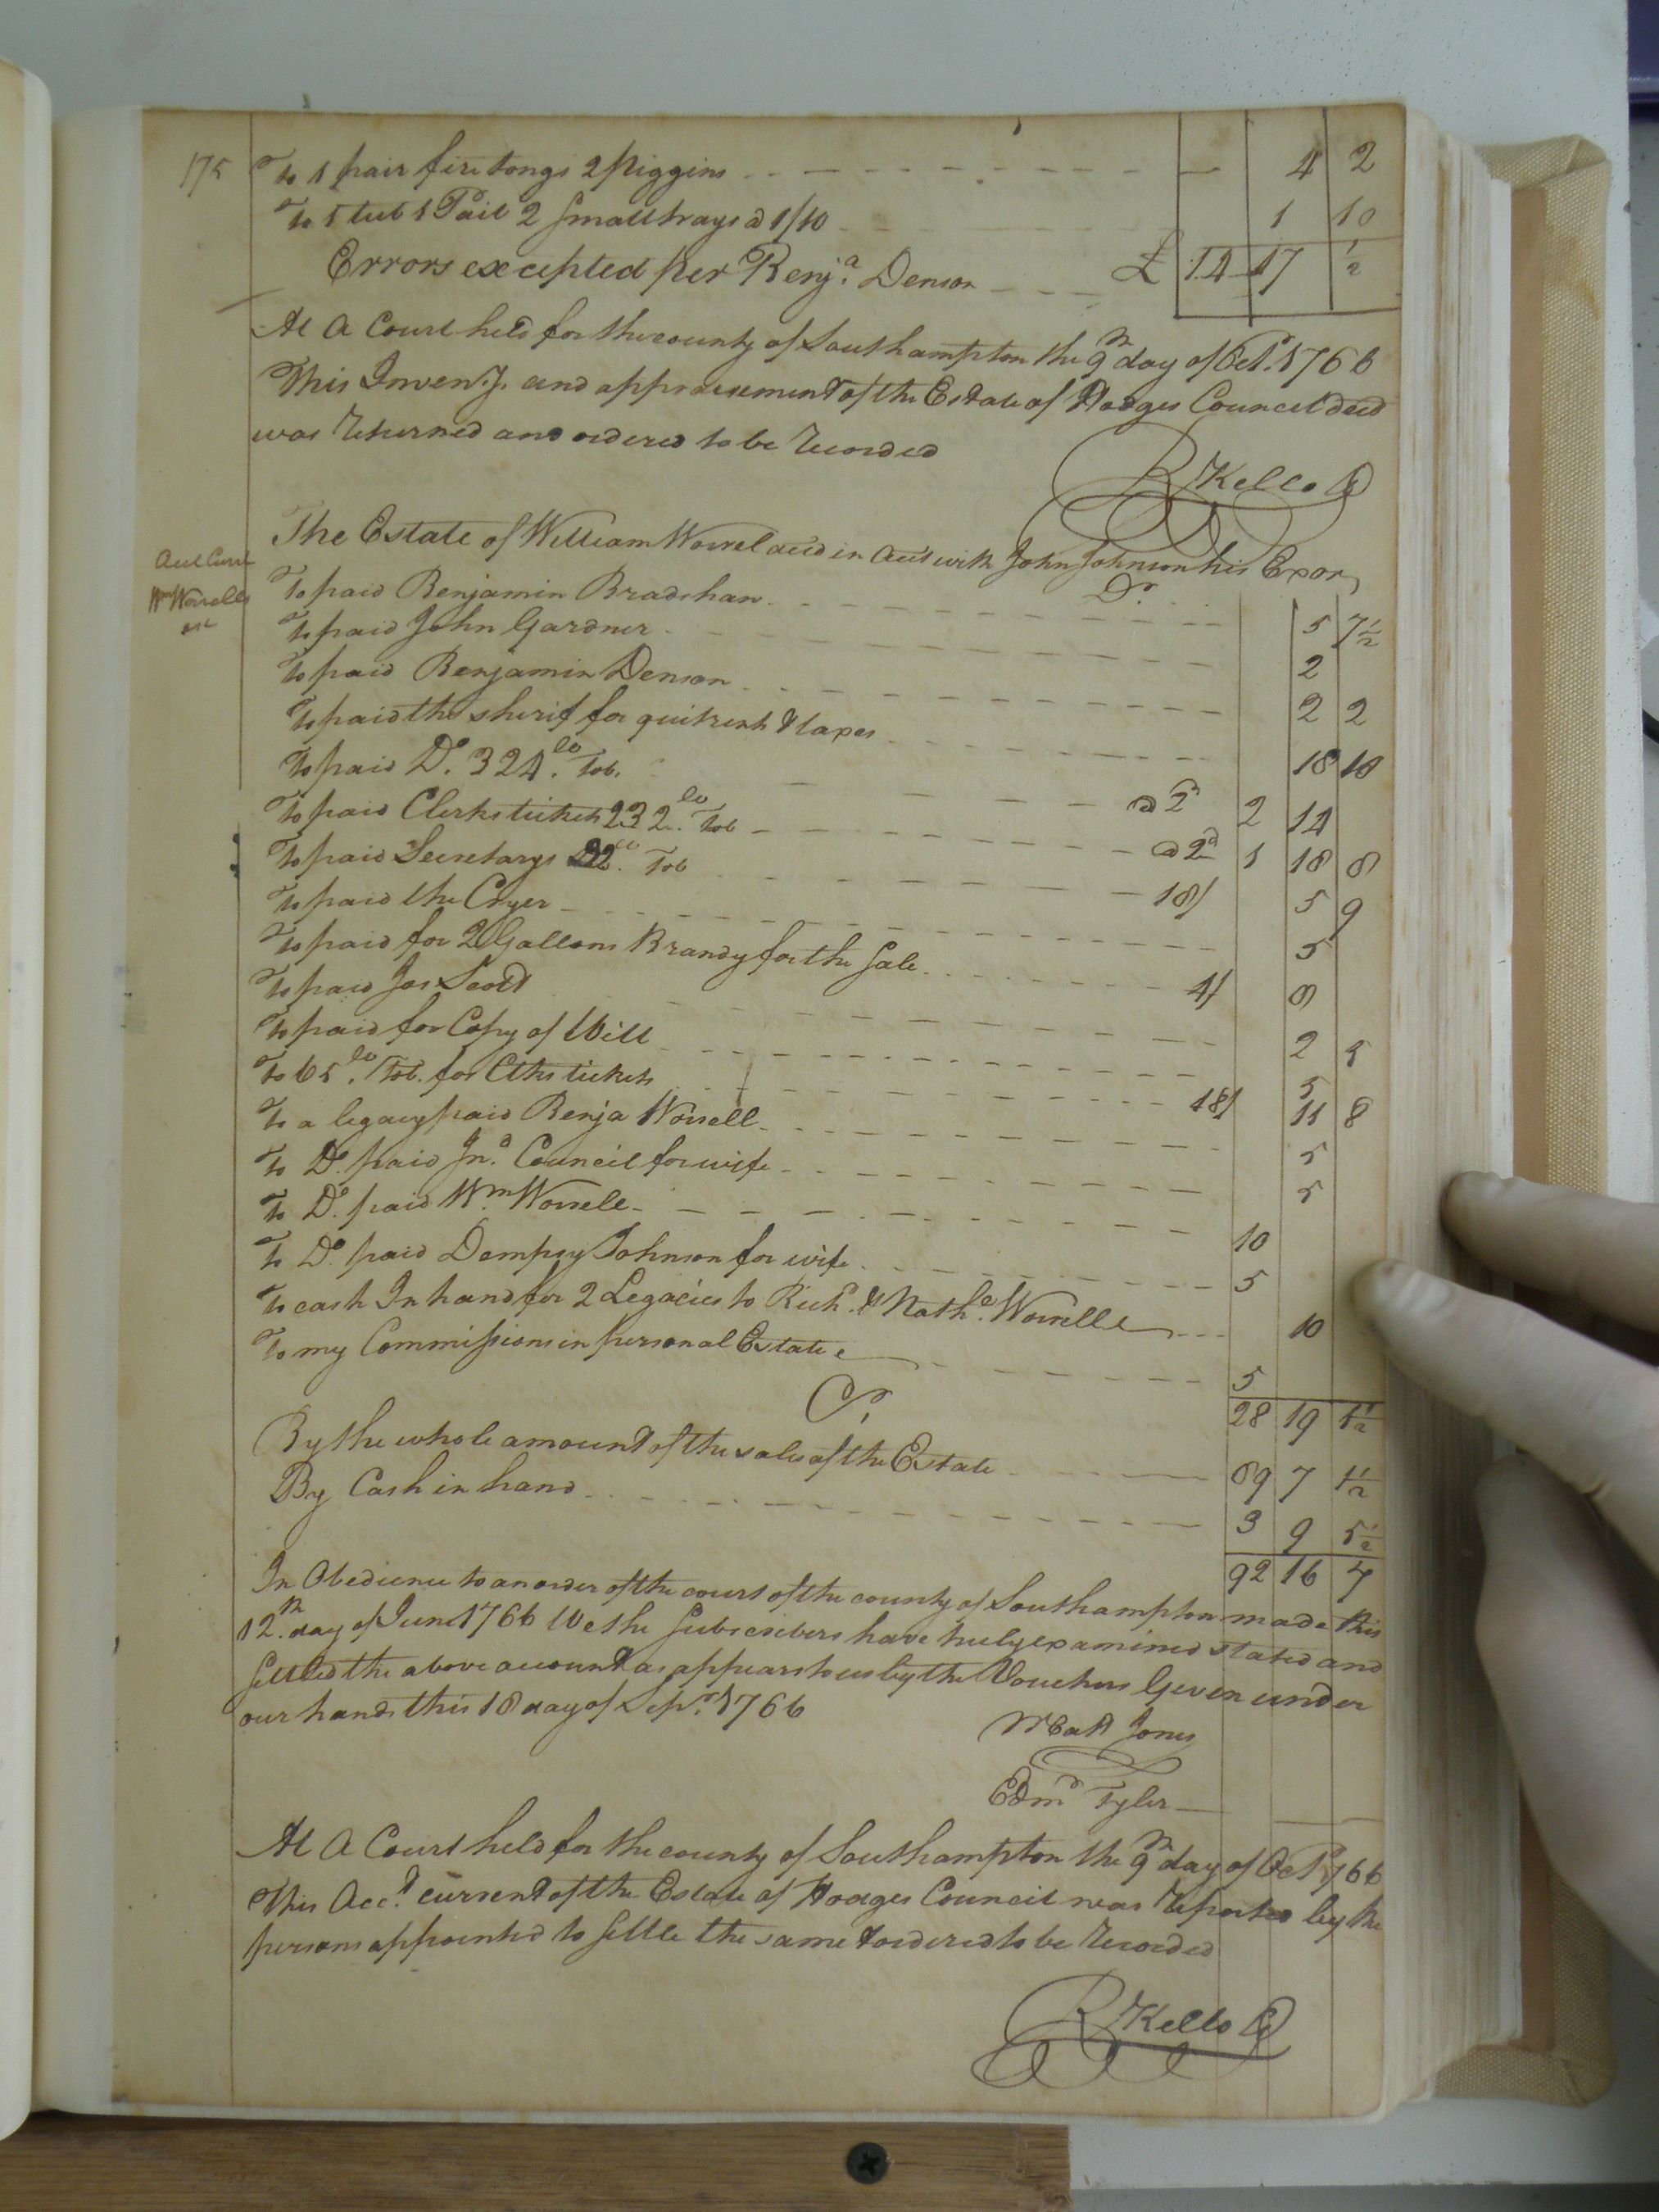 175
To 1 pair fire tongs 2 Piggins — 4 2
To 1 tub 1 Pail 2 Small trays a 1/10 1 10
Errors excepted per Benja. Denson £ 14 17 ½
At a Court held for the county of Southampton the 9th day of Octr. 1766
This Inven.y. and appraisement of the Estate of Hodges Council decd
was Returned and ordered to be Recorded
R Kello
The Estate of William Worrel decd in Acct with John Johnson his Exor
Acct Curt
Wm Worrells
Dr.
To paid Benjamin Bradshaw 5 7½
To paid John Gardner 2
To paid Benjamin Denson 2 2
To paid the sherif for quitrents & taxes 18 10
To paid Do. 324 lb. Tob. a 2d 2 14
To paid Clerks tickets 232 lb. Tob a 2d 1 18 8
To paid Secretarys Tob 18/ 5 9
To paid the Cryer 5
To paid for 2 Gallons Brandy for the Sale 4/ 8
To paid Jas Scott 2 5
To paid for Copy of Will 5
To 65 lb. Tob. for Clks tickets 18/ 11 8
To a legacy paid Benja Worrell 5
To Do. paid Jno. Council for wife 5
To Do. paid Wm. Worrell 10
To Do. paid Dempsy Johnson for wife 5
To cash In hand for 2 Legacies to Richd. & Nathl. Worrell 10
To my Commissions in personal Estate 5
28 19 1½
Cr.
By the whole amount of the sales of the Estate 89 7 1½
By Cash in hand 3 9 5½
92 16 7
In Obedience to an order of the court of the county of Southampton made this
12th. day of June 1766 We the Subscribers have truly examined stated and
Settled the above account as appears to us by the Vouchers Given under
our hands this 18 day of Sepr. 1766
Jones
Edmd Tyler
At A Court held for the county of Southampton the 9th day of Octr 1766
This Acct. current of the Estate of Hodges Council was Reported by the
persons appointed to settle the same & ordered to be Recorded
R Kello